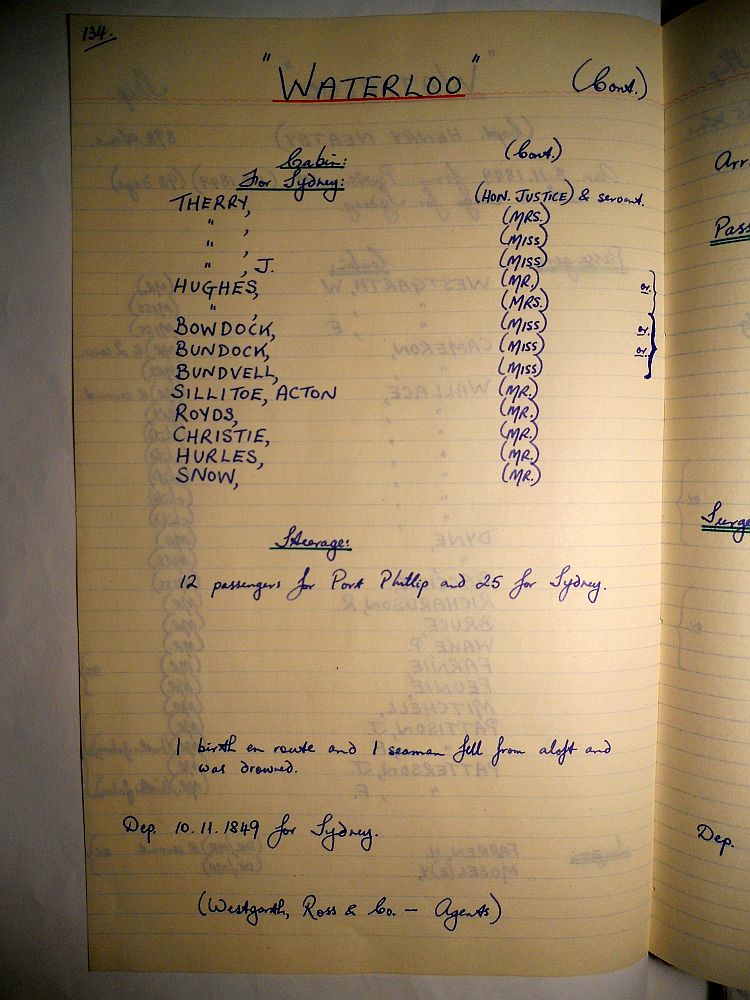 134.
"WATERLOO" (Cont.)
Cabin: (Cont.)
For Sydney:
THERRY, (HON. JUSTICE) & servant.
" , (MRS.)
" , (MISS)
" , J. (MISS)
HUGHES, (MR.) or
" , (MRS.)
BOWDOCK, (MISS) or
BUNDOCK, (MISS) or
BUNDVELL, (MISS)
SILLITOE, ACTON (MR.)
ROYDS, (MR.)
CHRISTIE, (MR.)
HURLES, (MR.)
SNOW, (MR.)
Steerage:
12 passengers for Port Phillip and 25 for Sydney.
1 birth en route and 1 seaman fell from aloft and
was drowned.
Dep. 10.11.1849 for Sydney.
(Westgarth, Ross & Co. — Agents)
Arr
Pass
Surge
Dep.